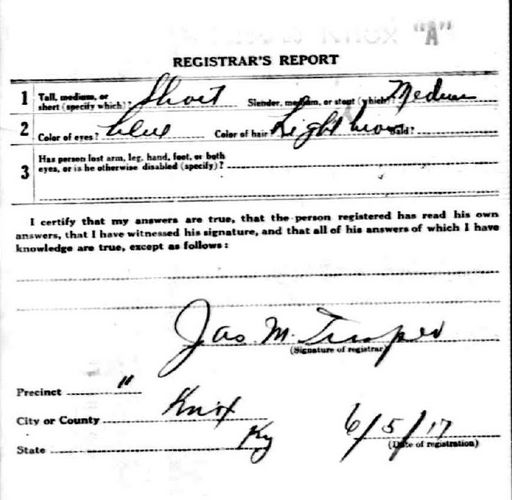 "A"
REGISTRAR'S REPORT
1 Tall, medium, or short (specify which)? Short Slender, medium, or stout (which)? Medium
2 Color of eyes? blue Color of hair? Light brown Bald?
3 Has person lost arm, leg, hand, foot, or both
eyes, or is he otherwise disabled (specify)?
I certify that my answers are true, that the person registered has read his own
answers, that I have witnessed his signature, and that all of his answers of which I have
knowledge are true, except as follows:
Jas M.
(Signature of registrar)
Precinct "
City or County Knox
State Ky 6/5/17
(Date of registration)